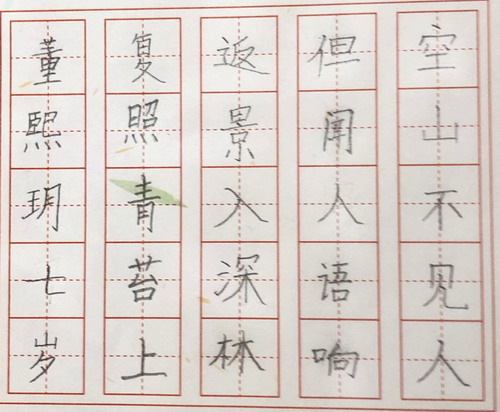 空山不见人
但闻人语响
返景入深林
复照青苔上
董熙玥七岁